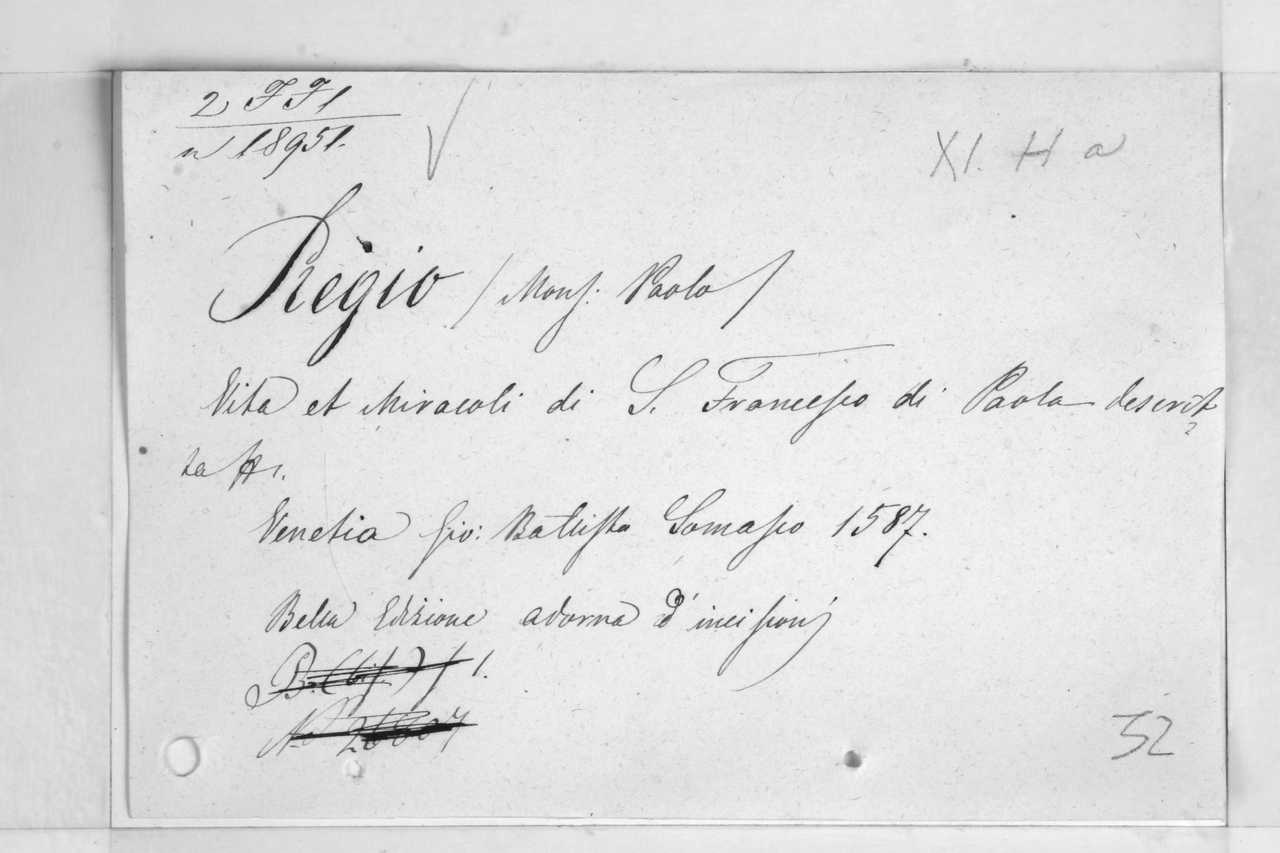 2 FF1
XI. H a
n 18951.
Règio / Mons. Paolo /
Vita et Miracoli di S. Francesco di Paola descrit
ta
Venetia Gio: Battista Somasco 1587.
Bella Edizione adorna d'incisioni
32